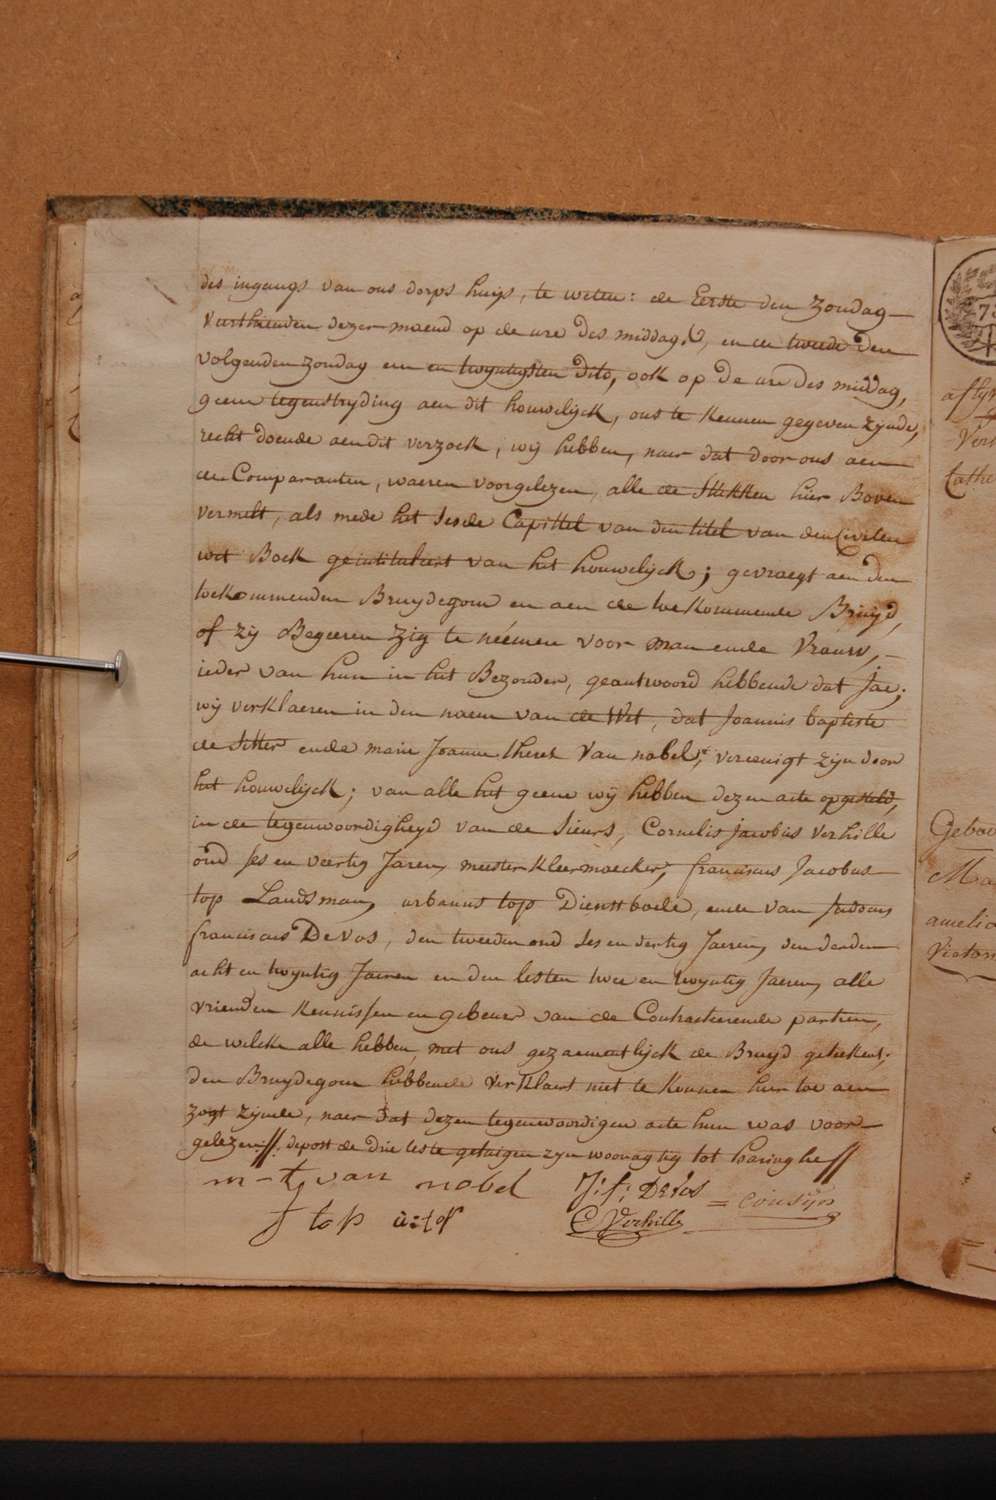 des ingangs van ons dorps huijs, te weten: de Eerste den zondag
veerthienden dezer maend op de ure des middags, en de tweede den
volgenden zondag een en twyntigsten dito, ook op de ure des middag,
geene tegenstryding aen dit houwelijck, ons te kennen gegeven zijnde,
recht doende aen dit verzoek, wij hebben, naer dat door ons aen
de Comparanten, waeren voorgelezen, alle de stukken hier Boven
vermelt, als mede het sesde Capittel van den titel van den Civilen
wet Boek geintituleert van het houwelijck; gevraegt aen den
toekommenden Bruydegom en aen de toekommende Bruyd,
of zij Begeeren zig te néémen voor man ende Vrauw,
ieder van hun in het Bezonder, geantwoord hebbende dat Jae;
wij verklaeren in den naem van de Wet, dat Joannis baptiste
de Sitter ende marie Joanne theret Van nobel, vereenigt zijn door
het houwelijck; van alle het geene wij hebben dezen acte opgesteld,
in de tegenwoordigheyd van de Sieurs, Cornelis jacobus verhille
oud ses en veertig Jaren, meester kleermaecker, franciscus Jacobus
top Landsman, urbanus top Dienstbode, ende van
franciscus De Vos, den tweeden oud ses en dertig Jaeren, den derden
acht en twyntig Jaeren en den lesten twee en twyntig Jaeren, alle
vrienden kennissen en gebeuren van de Contracteerende partien,
de welcke alle hebben, met ons gezaementlijck de Bruyd geteekent;
den Bruydegom hebbende verklaert niet te konnen hier toe aen
zogt zijnde, naer dat dezen tegenwoordigen acte hun was voor
gelezen //. de drie leste getuigen zyn woonagtig tot haringhe //
m-t van nobel J: f: De Vos = cousijn
f top u:top C Verhille